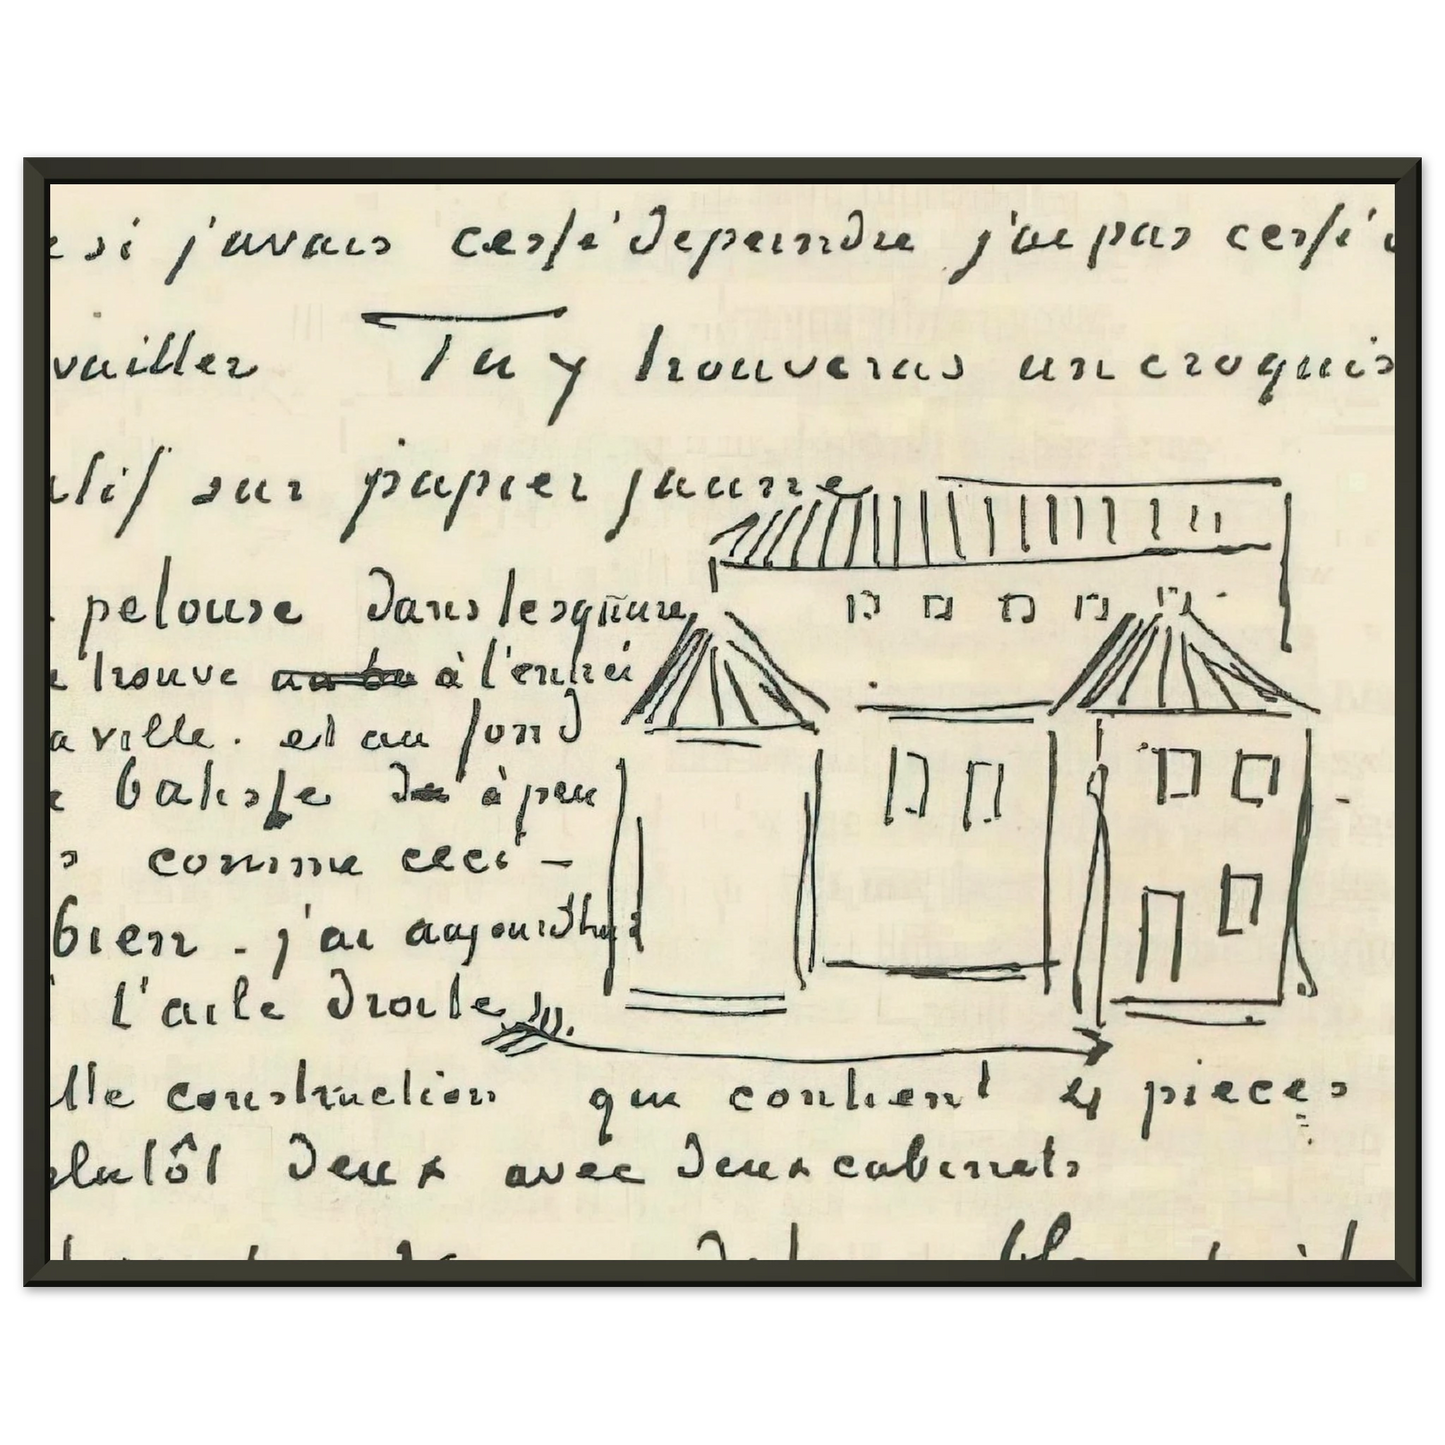 e si j'avais cessé de peindre j'ai pas cessé d
vailler Tu y trouveras un croquis
atif sur papier jaune
pelouse dans le square
e trouve à l'entrée
a ville. et au fond
e batisse de à peu
s comme ceci -
bien - j'ai aujourd'hui
l'aile droite
tte construction qui contient 4 pieces
plutôt deux avec deux cabinets